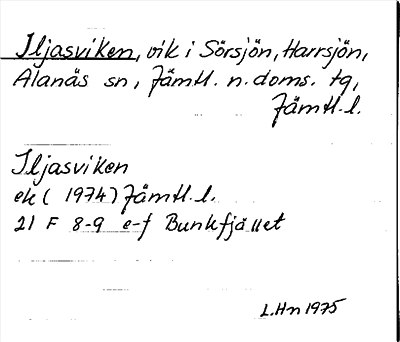 Iljasviken, vik i Sörsjön, Harrsjön,
Alanäs sn, Jämtl. n. doms. tg,
Jämtl. l.
Iljasviken
ek (1974) Jämtl. l.
21 F 8-9 e-f Bunkfjället
L.Hn 1975